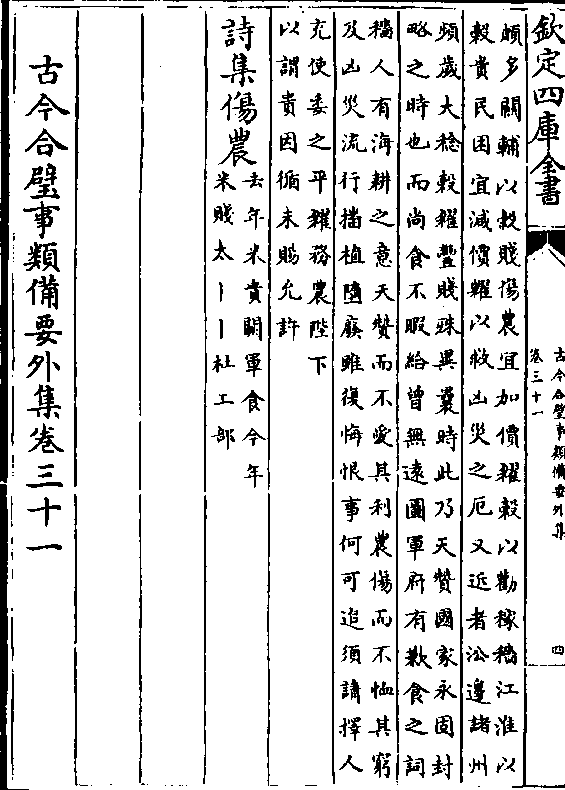 欽定四庫全書
古今合璧事類備要外集
卷三十一
四
頗多關輔以穀賤傷農宜加價糴穀以勸稼穡江淮以
穀貴民困宜減價糶以救凶災之厄又近者沿邊諸州
頻歲大稔穀糴豐賤殊異曩時此乃天贊國家永固封
略之時也而尚食不暇給曾無遠圖軍府有歉食之詞
穡人有海耕之意天贊而不愛其利農傷而不恤其窮
及凶災流行播植隳廢雖復悔恨事何可追須講擇人
充使委之平糴務農陛下
以謂貴因循未賜允許
詩集傷農
去年米貴闕軍食今年
米賤太丨丨杜工部
古今合璧事類備要外集卷三十一